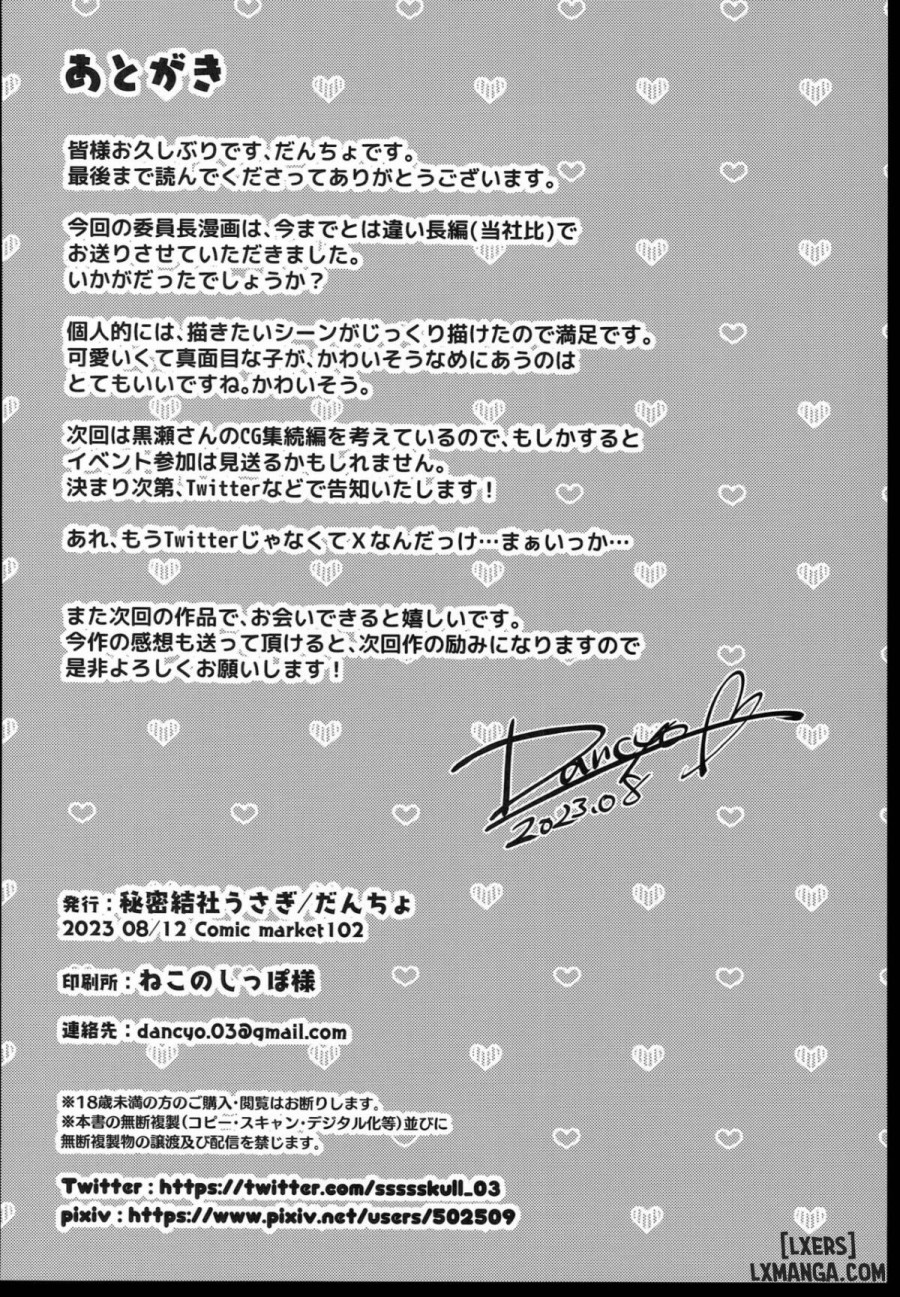 あとがき
皆様お久しぶりです、だんちょです。
最後まで読んでくださってありがとうございます。
今回の委員長漫画は、今までとは違い長編(当社比)で
お送りさせていただきました。
いかがだったでしょうか?
個人的には、描きたいシーンがじっくり描けたので満足です。
可愛いくて真面目な子が、かわいそうなめにあうのは
とてもいいですね。かわいそう。
次回は黒瀬さんのCG集続編を考えているので、もしかすると
イベント参加は見送るかもしれません。
決まり次第、Twitterなどで告知いたします!
あれ、もうTwitterじゃなくてXなんだっけ…まぁいっか…
また次回の作品で、お会いできると嬉しいです。
今作の感想も送って頂けると、次回作の励みになりますので
是非よろしくお願いします!
Dancyo
2023.08
発行:秘密結社うさぎ/だんちょ
2023 08/12 Comic market102
印刷所:ねこのしっぽ様
連絡先:dancyo.03@gmail.com
※18歳未満の方のご購入・閲覧はお断りします。
※本書の無断複製(コピー・スキャン・デジタル化等)並びに
無断複製物の譲渡及び配信を禁じます。
Twitter : https://twitter.com/sssssskull_03
pixiv : https://www.pixiv.net/users/502509
[LXERS]
LXMANGA.COM